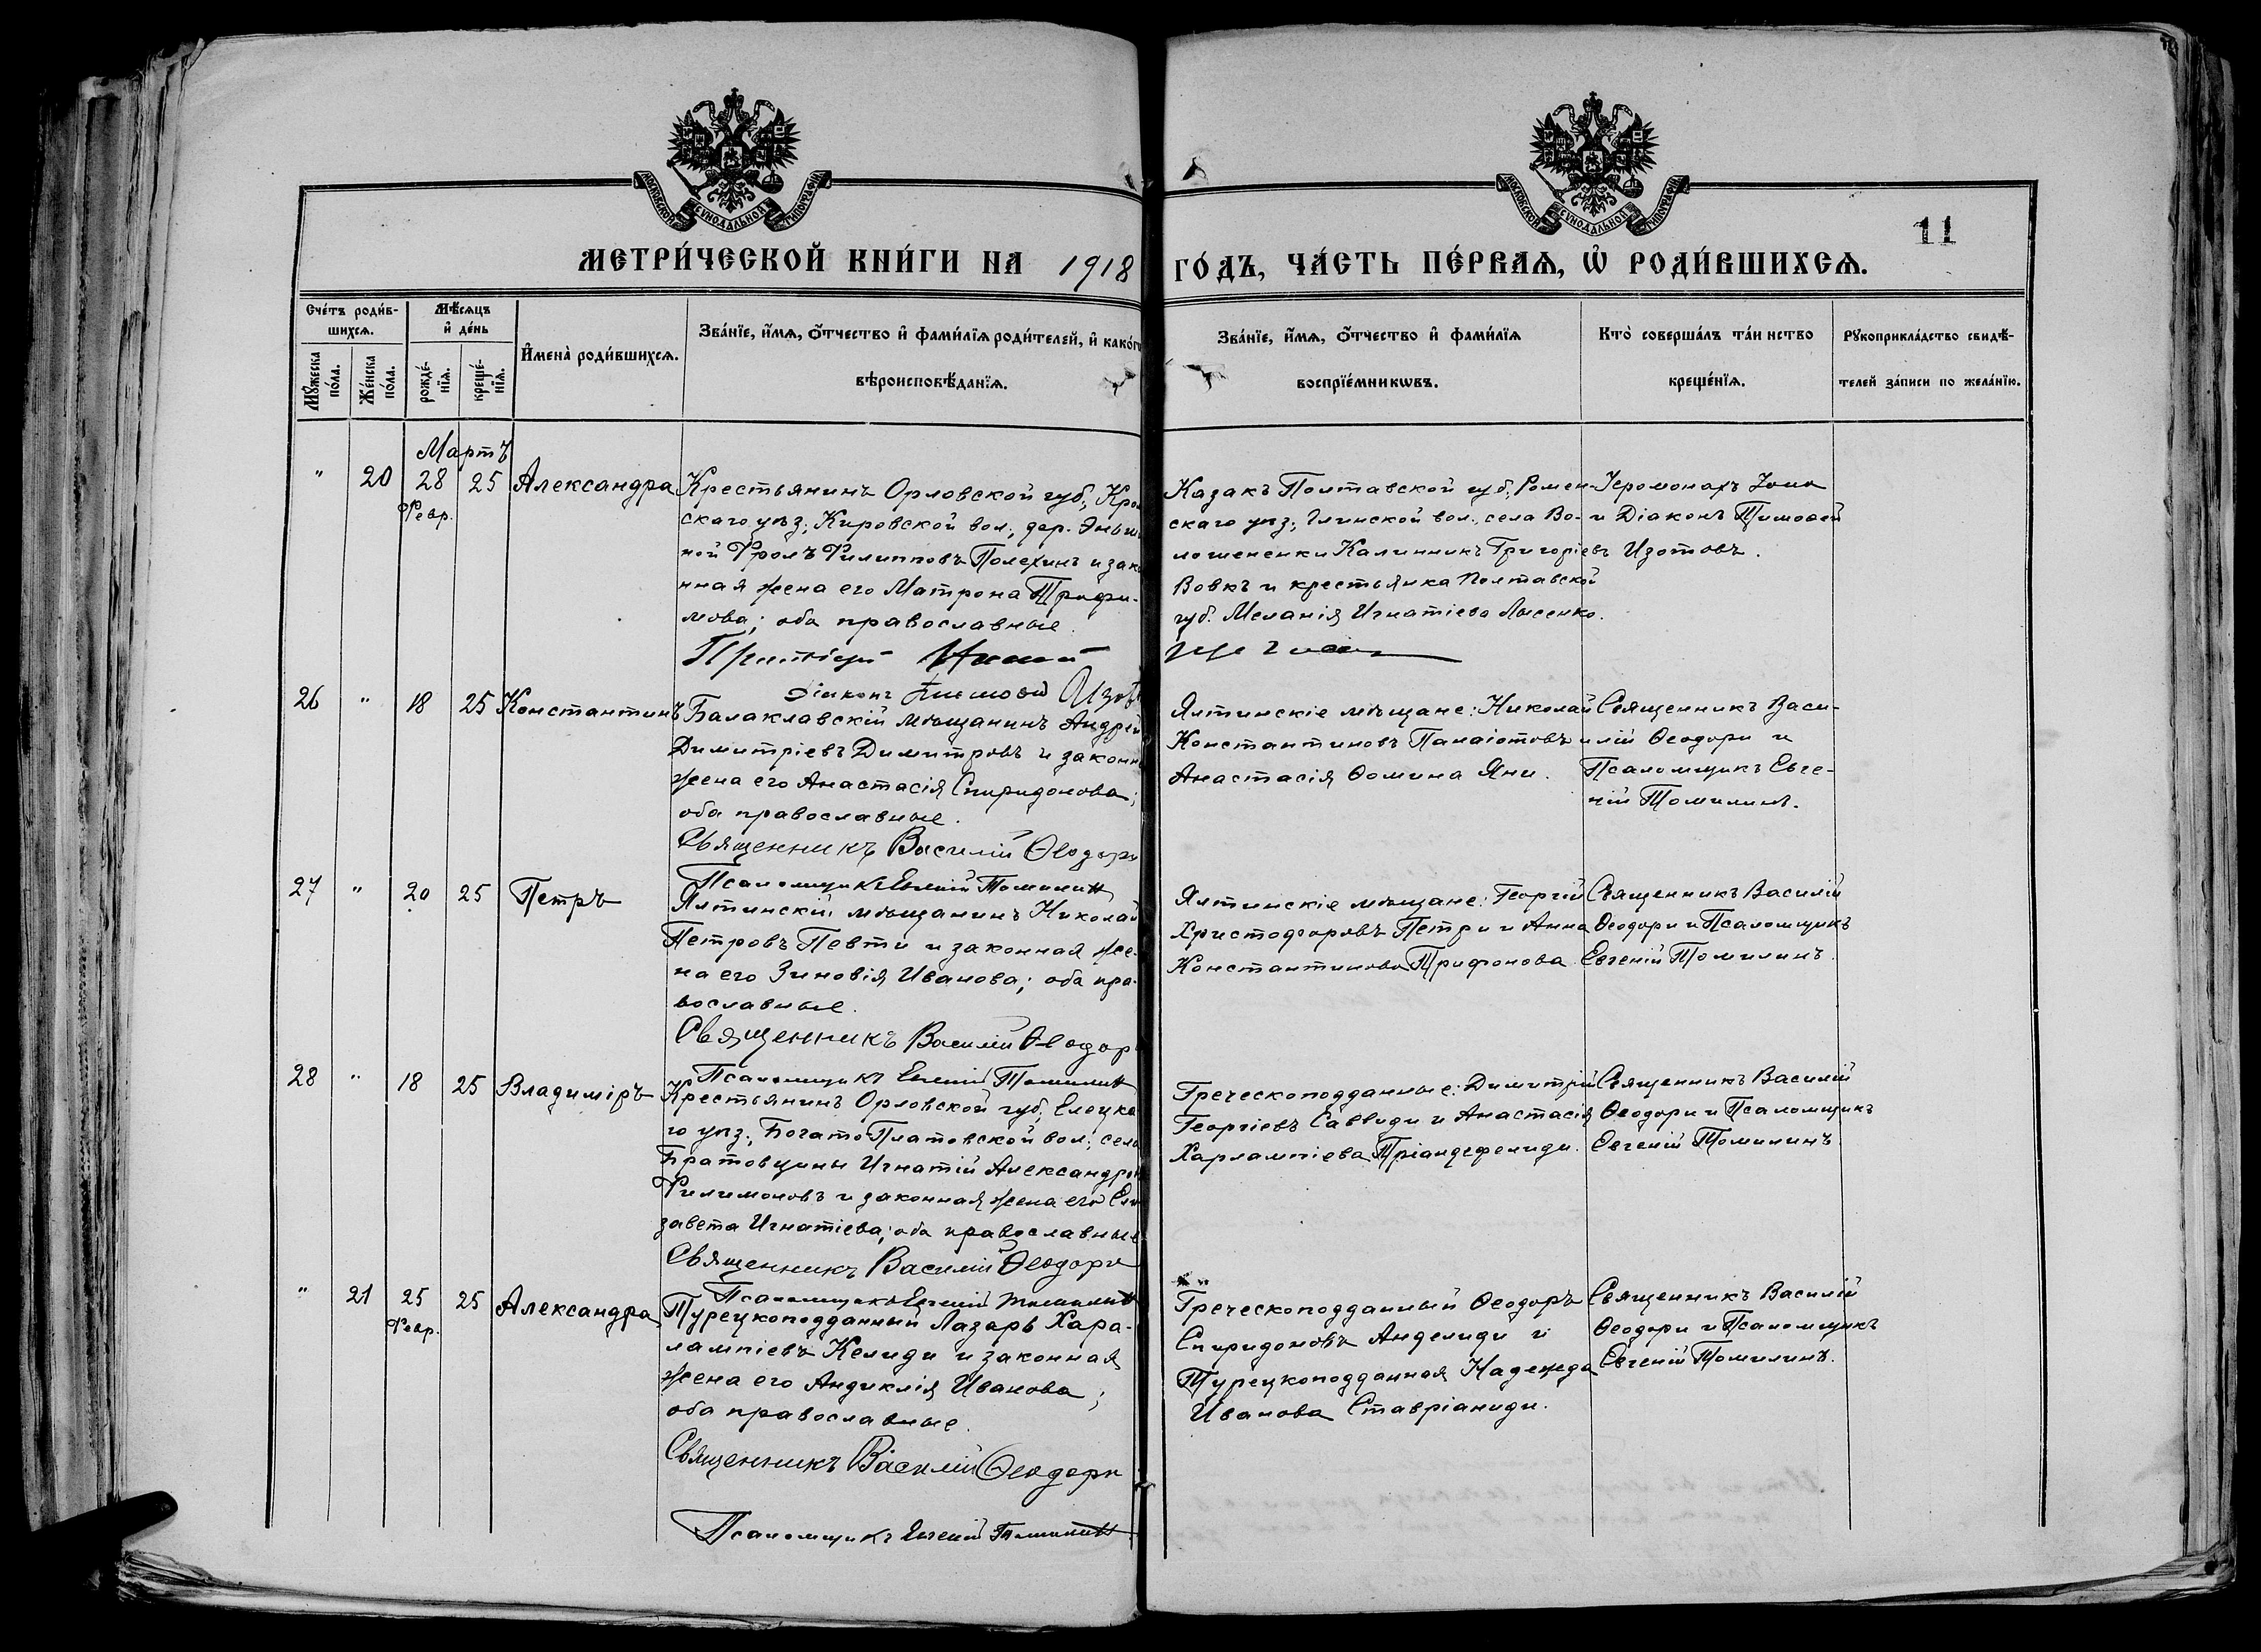 МОСКОВСКОЙ СУНОДАЛЬНОЙ ТИПОГРАФІИ
МОСКОВСКОЙ СУНОДАЛЬНОЙ ТИПОГРАФІИ
11
МЕТРИ́ЧЕСКОЙ КНИ́ГИ НА 1918 ГО́ДЪ, ЧА́СТЬ ПЕ́РВАѦ, Ѽ РОДИ́ВШИХСѦ.
Сче́тъ роди́в-
шихсѧ.
Мꙋ́жеска по́ла.
Же́нска по́ла.
Мѣ́сяцъ
и҆ де́нь
рожде́-
нїѧ.
креще́-
нїѧ.
И҆мена̀ роди́вшихсѧ.
Зва́нїе, и҆́мѧ, ѻ҆́тчество и҆ фами́лїѧ роди́телей, и҆ како́гѡ
вѣроисповѣ́данїѧ.
Зва́нїе, и҆́мѧ, ѻ҆́тчество и҆ фами́лїѧ
воспрїе́мникѡвъ.
Кто̀ соверша́лъ та́инство
креще́нїѧ.
Рꙋкоприкла́дство свидѣ́-
телей за́писи по жела́нїю.
Мартъ
" 20 28 Февр. 25 Александра
Крестьянинъ Орловской губ.,
скаго уѣз., Кировской вол., дер.
ной Фролъ Филипповъ Полехинъ и зако
нная жена его Матрона Трофи-
мова; оба православные.
діаконъ Тимоѳей Изот
Казакъ Полтавской губ., Ромен-
скаго уѣз., Глинской вол., села Во-
лошененки Калинникъ Григоріевъ
Вовкъ и крестьянка Полтавской
губ. Меланія Игнатіева Лысенко.
Іеромонахъ Іона
и Діаконъ Тимоѳей
Изотовъ.
26 " 18 25 Константинъ
Балаклавскій мѣщанинъ Андрей
Димитріевъ Димитровъ и законн
жена его Анастасія Спиридонова;
оба православные.
Священникъ Василій Ѳеодори
Псаломщикъ Евгеній Томилинъ
Ялтинскіе мѣщане: Николай
Константиновъ Панаіотовъ и
Анастасія Ѳомина Яни.
Священникъ Васи-
лій Ѳеодори и
Псаломщикъ Евге-
ній Томилинъ.
27 " 20 25 Петръ
Ялтинскій мѣщанинъ Николай
Петровъ Певти и законная же-
на его Зиновія Иванова; оба пра-
вославные.
Священникъ Василій Ѳеодори
Псаломщикъ Евгеній Томилинъ
Ялтинскіе мѣщане: Георгій
Христофоровъ Петри и Анна
Константинова Трифонова
Священникъ Василій
Ѳеодори и Псаломщикъ
Евгеній Томилинъ.
28 " 18 25 Владиміръ
Крестьянинъ Орловской губ., Елецка
го уѣз., Богато-Платовской вол., села
Братовщины Игнатій Александров
Филимоновъ и законная жена его Ели
завета Игнатіева; оба православные
Священникъ Василій Ѳеодори
Псаломщикъ Евгеній Томилинъ
Греческоподданные: Димитрій
Георгіевъ Саввиди и Анастасія
Харлампіева Тріандефелиди.
Священникъ Василій
Ѳеодори и Псаломщикъ
Евгеній Томилинъ.
" 21 25 Февр. 25 Александра
Турецкоподданный Лазарь Хара-
лампіевъ Келиди и законная
жена его Андиклія Иванова;
оба православные.
Священникъ Василій Ѳеодори
Псаломщикъ Евгеній Томилинъ
Греческоподданный Ѳеодоръ
Спиридоновъ Анделиди и
Турецкоподданная Надежда
Иванова Ставріаниди.
Священникъ Василій
Ѳеодори и Псаломщикъ
Евгеній Томилинъ.